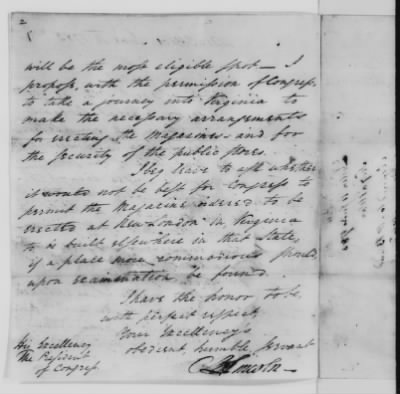 2
will be the most eligible spot — I
propose, with the permission of Congress,
to take a journey into Virginia to
make the necessary arrangements
for erecting the Magazines — and for
the security of the public stores.
I beg leave to ask whether
it would not be best for Congress to
permit the Magazine ordered to be
erected at New London in Virginia
to be built elsewhere in that State,
if a place more commodious should
upon examination be found.
I have the honor to be,
with perfect respect
Your Excellency's
obedient humble servant
His Excellency
The President
of Congress
B Lincoln